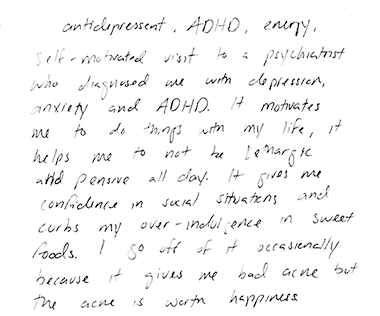 antidepressant, ADHD, energy,
Self-motivated visit to a psychiatrist
who diagnosed me with depression,
anxiety and ADHD. It motivates
me to do things with my life, it
helps me to not be lethargic
and pensive all day. It gives me
confidence in social situations and
curbs my over-indulgence in sweet
foods. I go off of it occasionally
because it gives me bad acne but
the acne is worth happiness